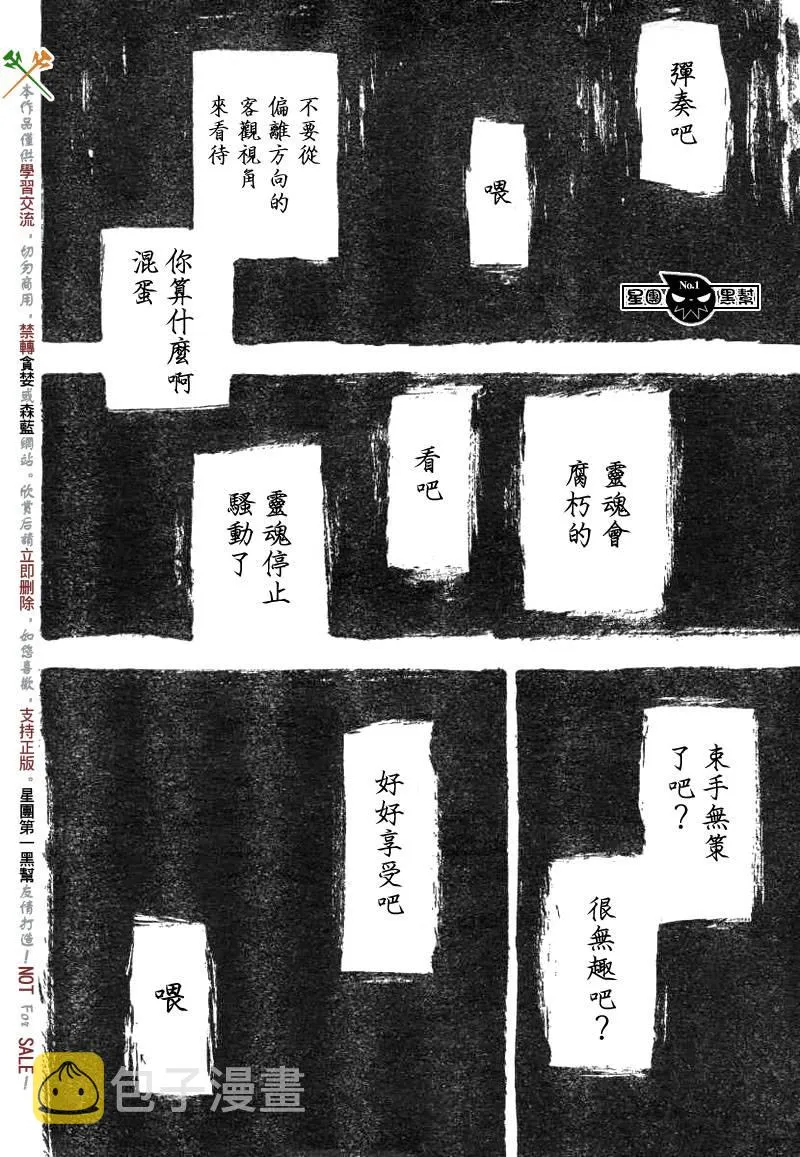 彈奏吧
喂
不要從
偏離方向的
客觀視角
來看待
你算什麼啊
混蛋
星團
No.1
黑幫
靈魂會
腐朽的
看吧
靈魂停止
騷動了
束手無策
了吧？
很無趣吧？
好好享受吧
喂
本作品僅供學習交流，切勿商用，禁轉貪婪或森藍網站。欣賞后請立即刪除，如您喜歡，支持正版。星團第一黑幫友情打造！NOT For SALE！
包子漫畫